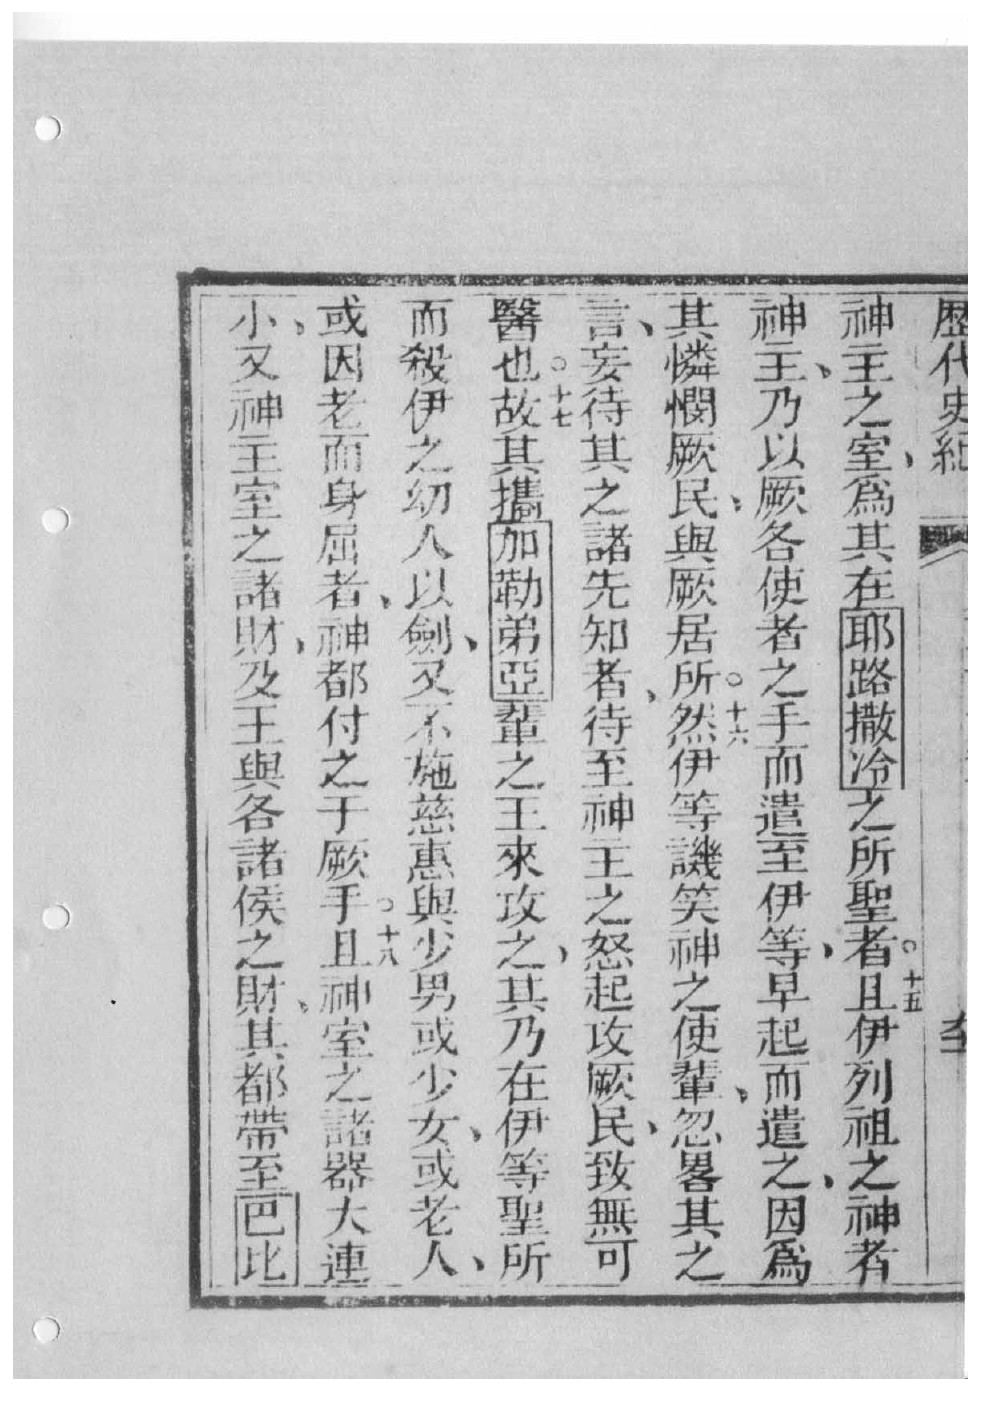 歷代史紀
神主之室、爲其在耶路撒冷之所聖者○十五且伊列祖之神者
神主、乃以厥各使者之手而遣至伊等、早起而遣之、因爲
其憐憫厥民、與厥居所○十六然伊等譏笑神之使輩、忽畧其之
言、妄待其之諸先知者、待至神主之怒起攻厥民、致無可
醫也○十七故其攜加勒弟亞輩之王來攻之、其乃在伊等聖所
而殺伊之幼人以劍、又不施慈惠與少男或少女、或老人、
或因老而身屈者、神都付之于厥手○十八且神室之諸器大連
小、又神主室之諸財、及王與各諸侯之財、其都帶至巴比